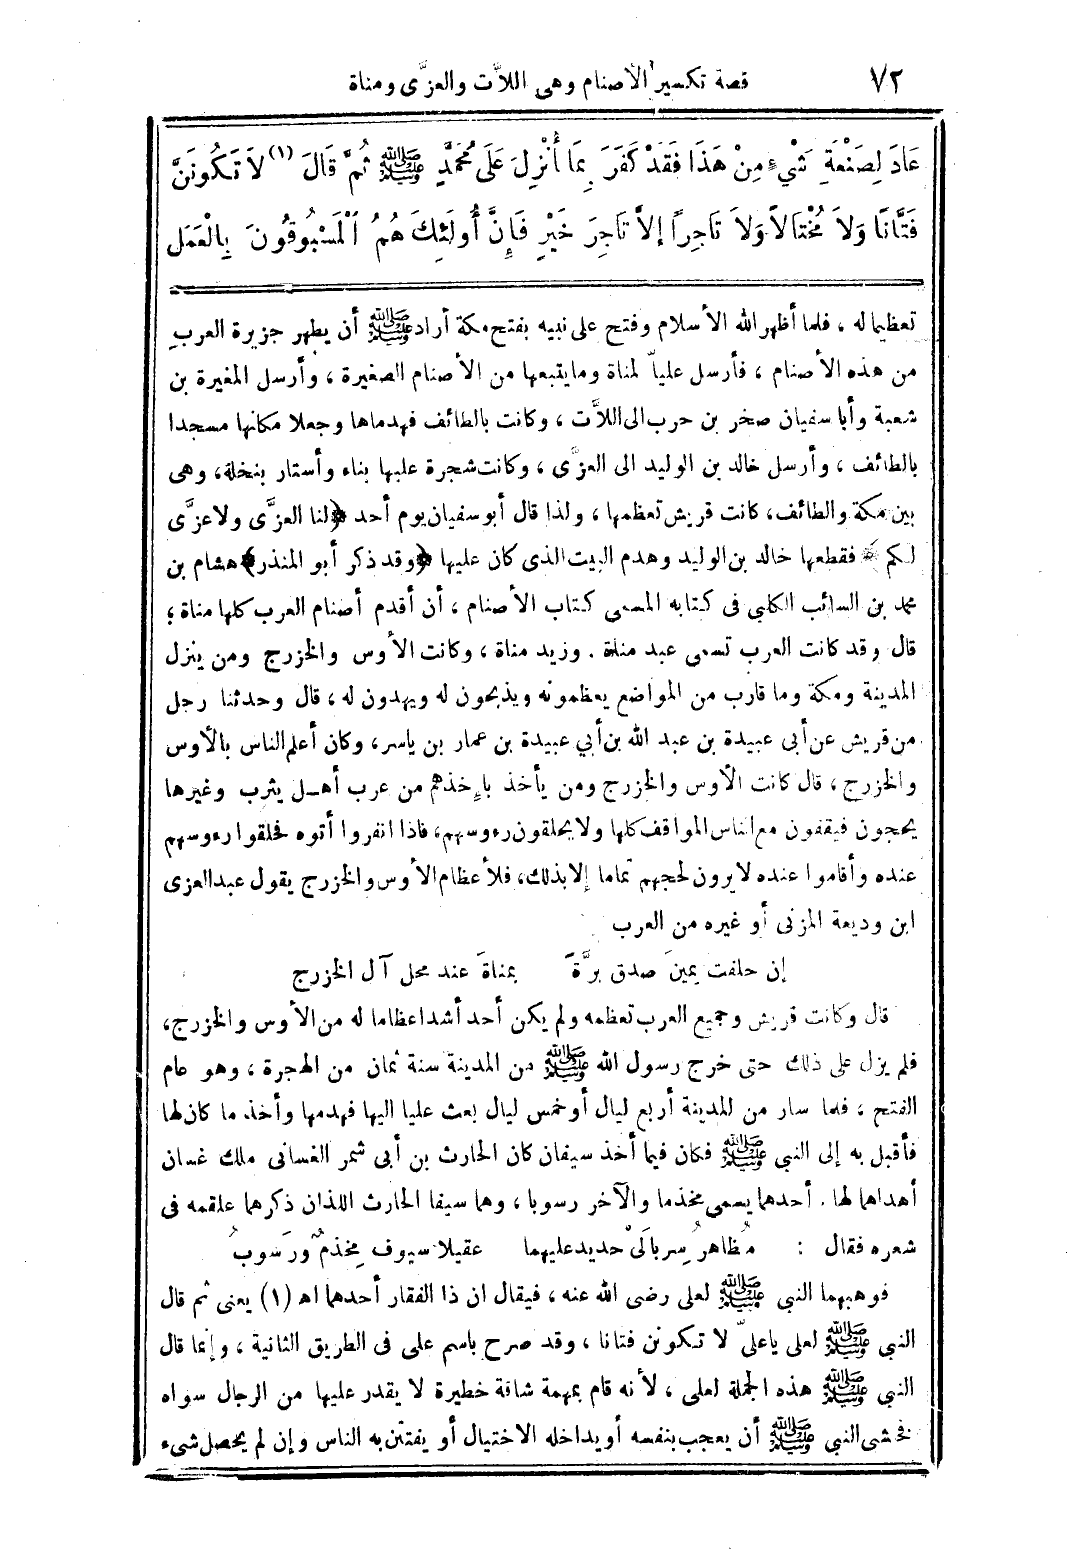 ٧٢ قصة تكسير الأصنام وهى اللاَّت والعزَّى ومناة
عَادَ لِصَنْعَةِ شَيْءٍ مِنْ هَذَا فَقَدْ كَفَرَ بِمَا أُنْزِلَ عَلَى مُحَمَّدٍ ﷺ ثُمَّ قَالَ (١) لاَ تَكُونَنَّ
فَتَّانًا وَلاَ مُخْتَالاً وَلاَ تَاجِراً إلاَّ تَاجِرَ خَيْرٍ فَإِنَّ أُولَئِكَ هُمُ الْمَسْبُوقُونَ بِالْعَمَل
تعظيما له ، فلما أظهر الله الأسلام وفتح على نبيه بفتح مكة أراد ﷺ أن يطهر جزيرة العرب
من هذه الأصنام ، فأرسل علياّ لمناة وما يتبعها من الأصنام الصغيرة ، وأرسل المغيرة بن
شعبة وأبا سفيان صخر بن حرب الى اللاَّت ، وكانت بالطائف فهدماها وجعلا مكانها مسجدا
بالطائف ، وأرسل خالد بن الوليد الى العزَّى ، وكانت شجرة عليها بناء وأستار بنخلة، وهى
بين مكة والطائف، كانت قريش تعظمها ، ولذا قال أبو سفيان يوم أحد ﴿لنا العزَّى ولا عزَّى
لكم﴾ فقطعها خالد بن الوليد وهدم البيت الذى كان عليها ﴿وقد ذكر أبو المنذر﴾ هشام بن
محمد بن السائب الكلبي فى كتابه المسمى كتاب الأصنام ، أن أقدم أصنام العرب كلها مناة ؛
قال وقد كانت العرب تسمى عبد مناة . وزيد مناة ، وكانت الأوس والخزرج ومن ينزل
المدينة ومكة وما قارب من المواضع يعظمونه ويذبحون له ويهدون له ، قال وحدثنا رجل
من قريش عن أبى عبيدة بن عبد الله بن أبي عبيدة بن عمار بن ياسر، وكان أعلم الناس بالأوس
والخزرج ، قال كانت الأوس والخزرج ومن يأخذ بإخذهم من عرب أهـل يثرب وغيرها
يحجون فيقفون مع الناس المواقف كلها ولا يحلقون رءوسهم، فاذا انفروا أتوه فحلقوا رءوسهم
عنده وأقاموا عنده لا يرون لحجهم تماما إلا بذلك، فلأعظام الأوس والخزرج يقول عبد العزى
ابن وديعة المزنى أو غيره من العرب
إن حلفت يمينَ صدق برَّةَ بمناةَ عند محل آل الخزرج
قال وكانت قريش وجميع العرب تعظمه ولم يكن أحد أشد اعظاما له من الأوس والخزرج،
فلم يزل على ذلك حتى خرج رسول الله ﷺ من المدينة سنة ثمان من الهجرة ، وهو عام
الفتح ، فلما سار من المدينة أربع ليال أو خمس ليال بعث عليا اليها فهدمها وأخذ ما كان لها
فأقبل به إلى النبي ﷺ فكان فيما أخذ سيفان كان الحارث بن أبى شمر الغسانى ملك غسان
أهداهما لها . أحدهما يسمى مخذما والآخر رسوبا ، وهما سيفا الحارث اللذان ذكرهما علقمه فى
شعره فقال : مُظاهرُ سِربالَىْ حديد عليهما عقيلا سيوف مِخذمٌ ورَسوبُ
فوهبهما النبي ﷺ لعلى رضى الله عنه ، فيقال ان ذا الفقار أحدهما اه (١) يعنى ثم قال
النبي ﷺ لعلى ياعليّ لا تكونن فتانا ، وقد صرح باسم على فى الطريق الثانية ، وإنما قال
النبي ﷺ هذه الجملة لعلى ، لأنه قام بمهمة شاقة خطيرة لا يقدر عليها من الرجال سواه
فخشى النبي ﷺ أن يعجب بنفسه أو يداخله الاختيال أو يفتتن به الناس وإن لم يحصل شىء